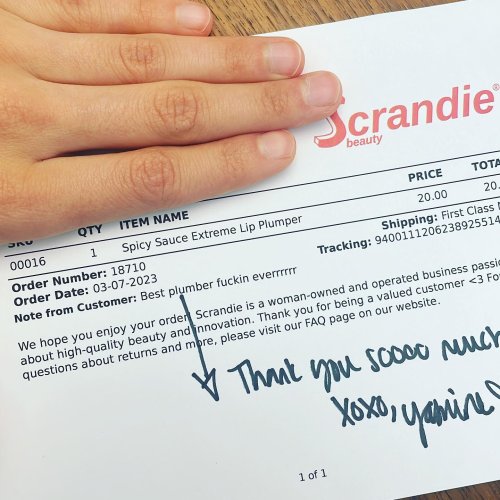 Scrandie®
beauty
QTY ITEM NAME PRICE
00016 1 Spicy Sauce Extreme Lip Plumper 20.00 20.
Order Number: 18710 Shipping: First Class
Order Date: 03-07-2023 Tracking: 9400111206238925514
Note from Customer: Best plumber fuckin everrrrrr
We hope you enjoy your order! Scrandie is a woman-owned and operated business
about high-quality beauty and innovation. Thank you for being a valued customer <3
questions about returns and more, please visit our FAQ page on our website.
Thank you soooo much
xoxo, yamine
1 of 1